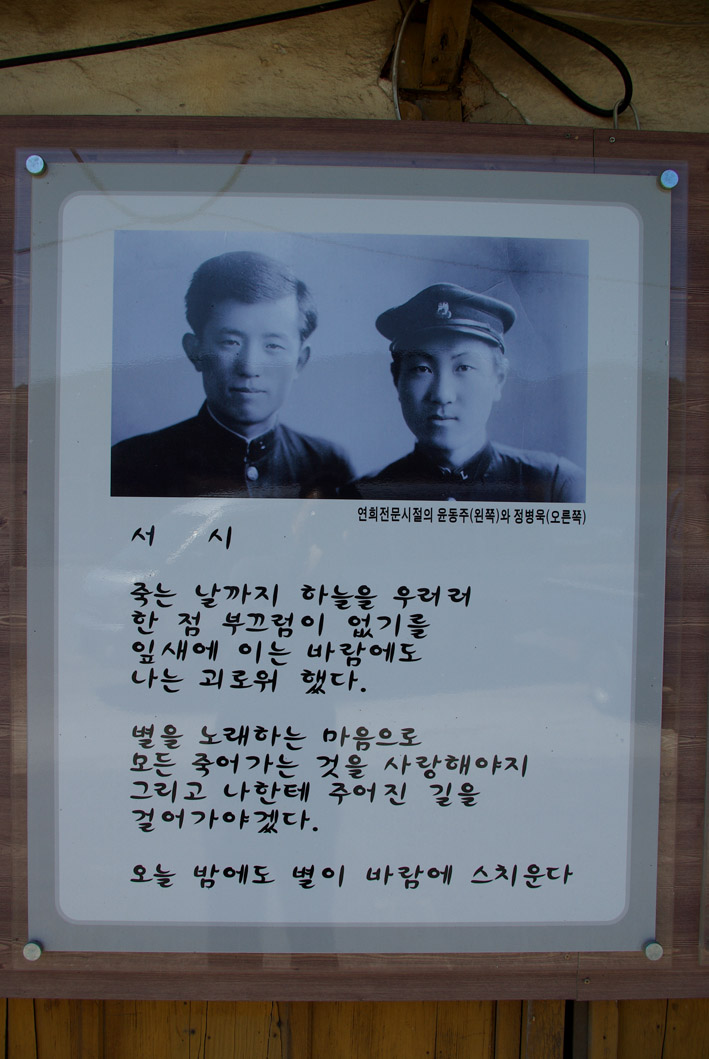 연희전문시절의 윤동주(왼쪽)와 정병욱(오른쪽)
서 시
죽는 날까지 하늘을 우러러
한 점 부끄럼이 없기를
잎새에 이는 바람에도
나는 괴로워 했다.
별을 노래하는 마음으로
모든 죽어가는 것을 사랑해야지
그리고 나한테 주어진 길을
걸어가야겠다.
오늘 밤에도 별이 바람에 스치운다